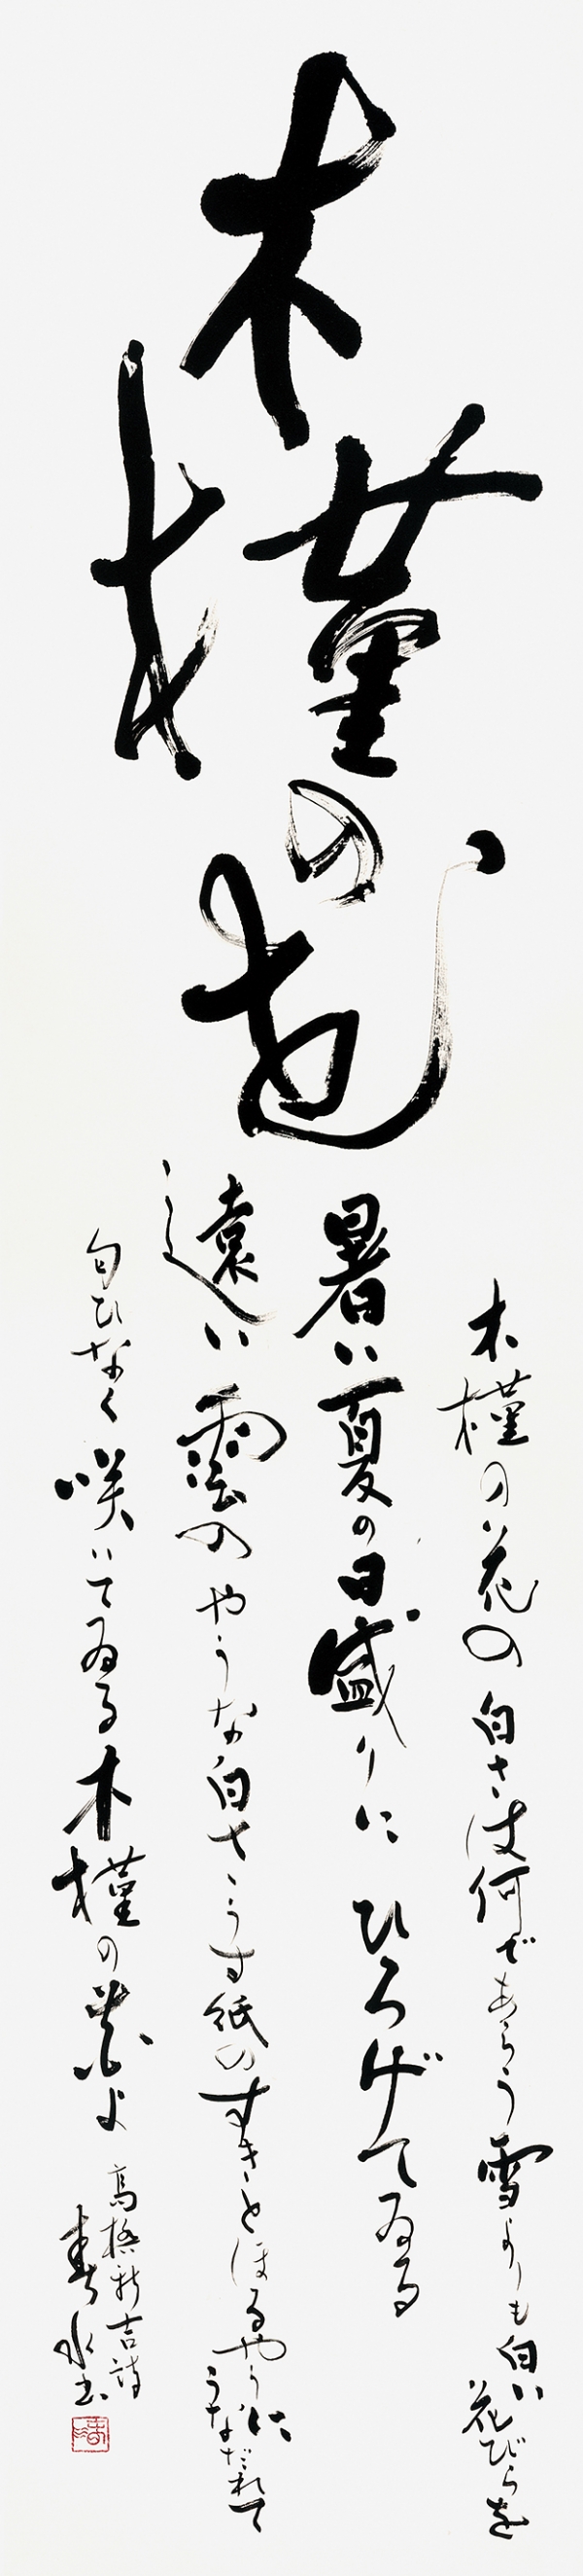 木槿の花
木槿の花の白さは何であらう雪よりも白い花びらを
暑い夏の日盛りにひろげてゐる
遠い雲のやうな白さうす紙のすきとほるやうにうなだれて
匂ひなく咲いてゐる木槿の花よ
高橋新吉詩
春水書